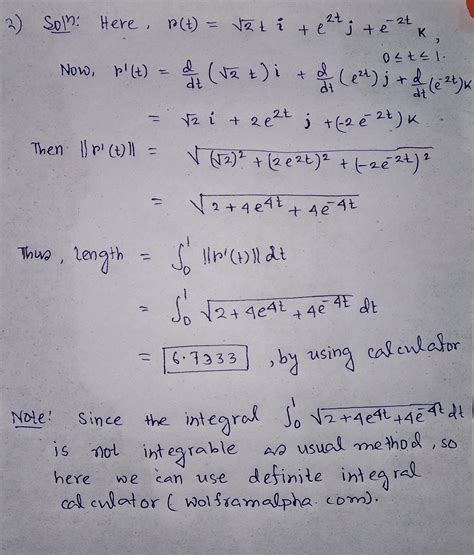 2) Soln: Here, r(t) = √2 t i + e^{2t} j + e^{-2t} K,
0 ≤ t ≤ 1.
Now, r'(t) = d/dt (√2 t) i + d/dt (e^{2t}) j + d/dt (e^{-2t}) K
= √2 i + 2e^{2t} j + (-2e^{-2t}) K
Then ||r'(t)|| = √((√2)^2 + (2e^{2t})^2 + (-2e^{-2t})^2)
= √(2 + 4e^{4t} + 4e^{-4t})
Thus, length = ∫_0^1 ||r'(t)|| dt
= ∫_0^1 √(2 + 4e^{4t} + 4e^{-4t}) dt
= 6.7333, by using calculator
Note: Since the integral ∫_0^1 √(2 + 4e^{4t} + 4e^{-4t}) dt
is not integrable as usual method, so
here we can use definite integral
calculator (wolframalpha.com).